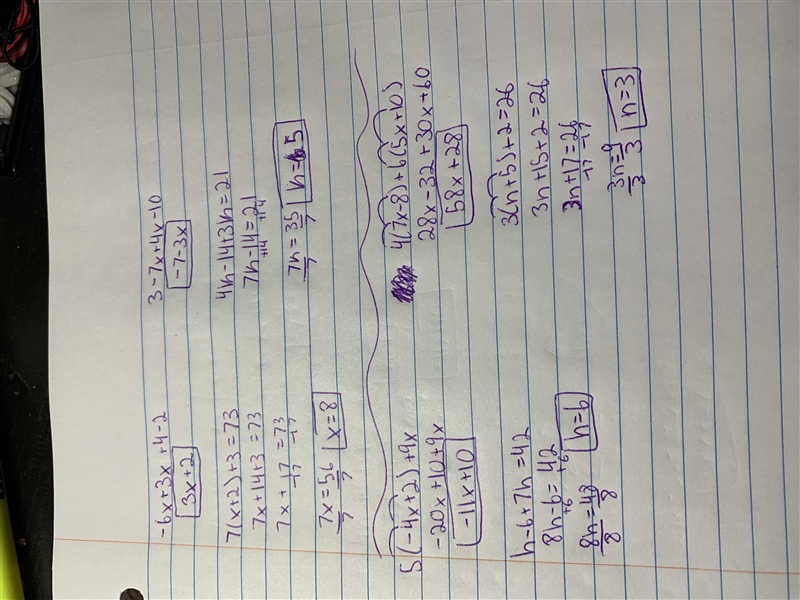 -6x+3x+4-2
3x+2
3-7x+4x-10
-7-3x
7(x+2)+3=73
7x+14+3=73
7x+17=73
-17 -17
7x=56 x=8
7 7
4n-14+3n=21
7n-14=21
+14 +14
7n=35 n=5
7 7
5(-4x+2)+9x
-20x+10+9x
-11x+10
4(7x-8)+6(5x+10)
28x-32+30x+60
58x+28
n-6+7n=42
8n-6=42
+6 +6
8n=48 n=6
8 8
3(n+5)+2=26
3n+15+2=26
3n+17=26
-17 -17
3n=9 n=3
3 3